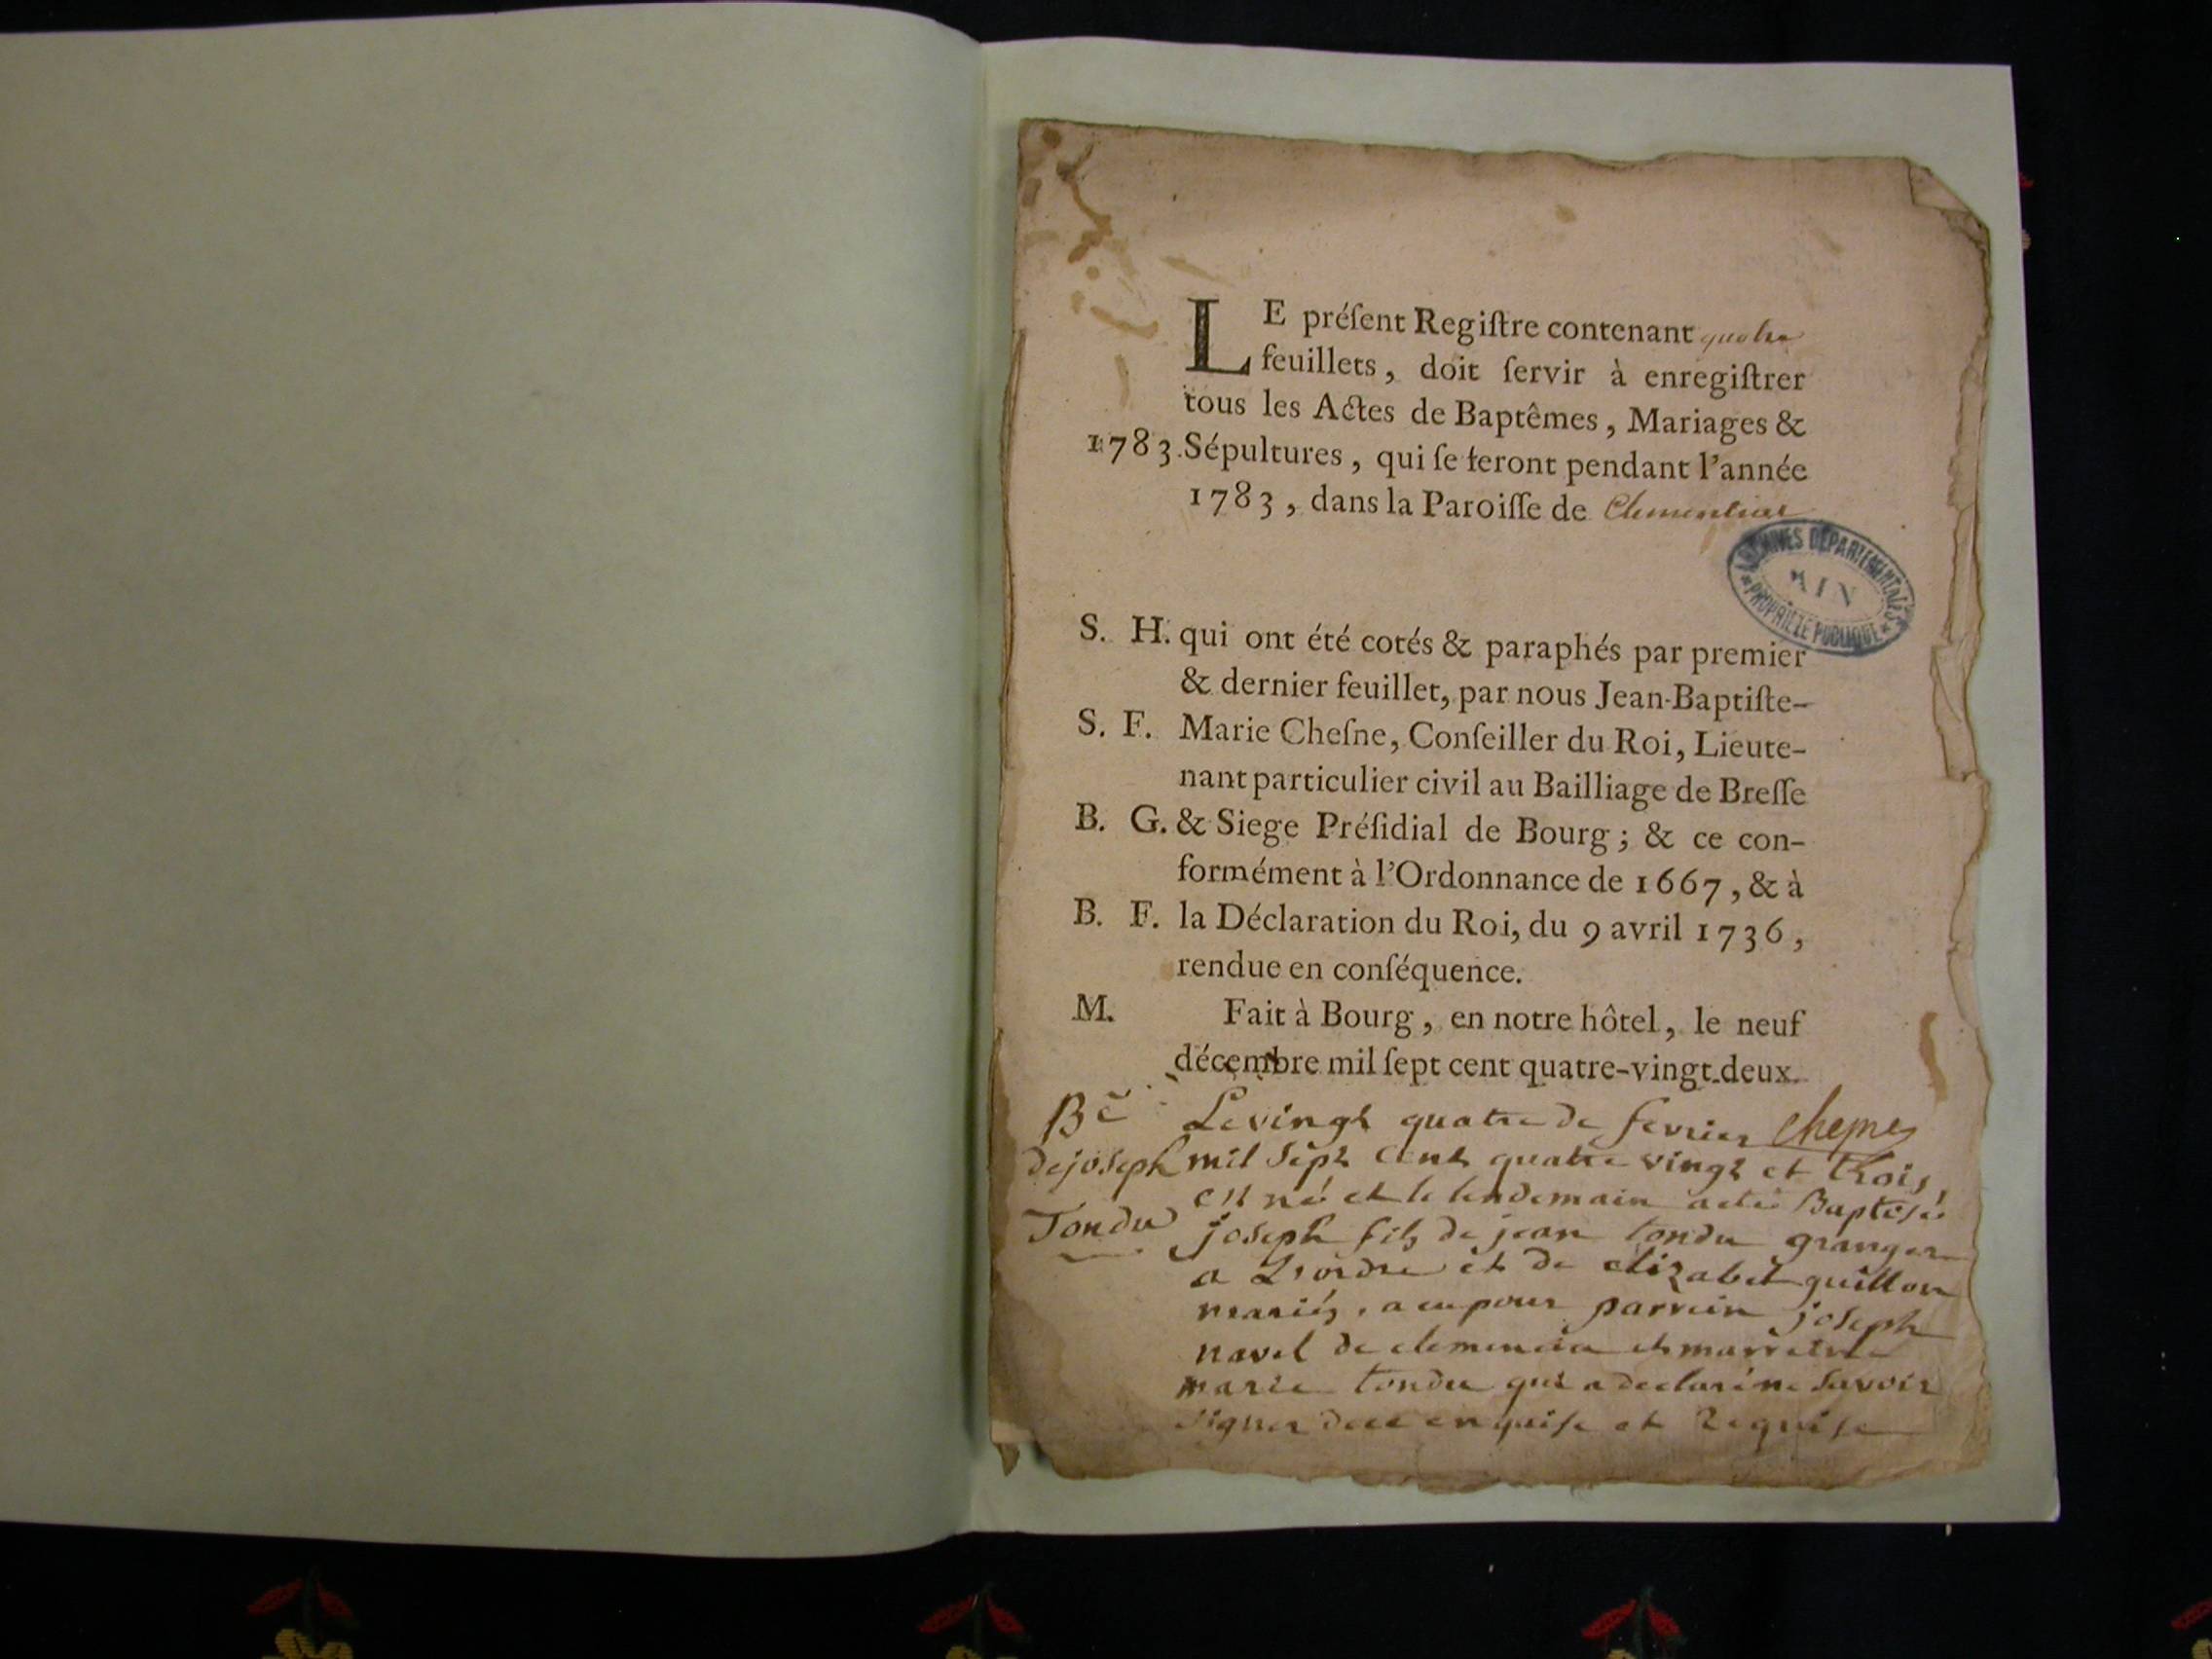 LE préſent Regiſtre contenant quatre
feuillets, doit ſervir à enregiſtrer
tous les Actes de Baptêmes, Mariages &
1783. Sépultures, qui ſe feront pendant l'année
1783, dans la Paroiſſe de
ARCHIVES DEPARTEMENTALES
AIN
PROPRIÉTÉ PUBLIQUE
S. H. qui ont été cotés & paraphés par premier
& dernier feuillet, par nous Jean-Baptiſte-
S. F. Marie Cheſne, Conſeiller du Roi, Lieute-
nant particulier civil au Bailliage de Breſſe
B. G. & Siege Préſidial de Bourg; & ce con-
formément à l'Ordonnance de 1667, & à
B. F. la Déclaration du Roi, du 9 avril 1736,
rendue en conſéquence.
M. Fait à Bourg, en notre hôtel, le neuf
décembre mil ſept cent quatre-vingt-deux.
Be Le vingt quatre de fevrier Chesne
de joseph mil sept cent quatre vingt et trois,
est né et le lendemain a eté Baptisé
Tondu joseph fils de jean tondu granger
a et de elizabet guillon
mariés, a eu pour parrein joseph
navel de clemencia et marreine
marie tondu qui a declaré ne savoir
signer de ce enquise et requise